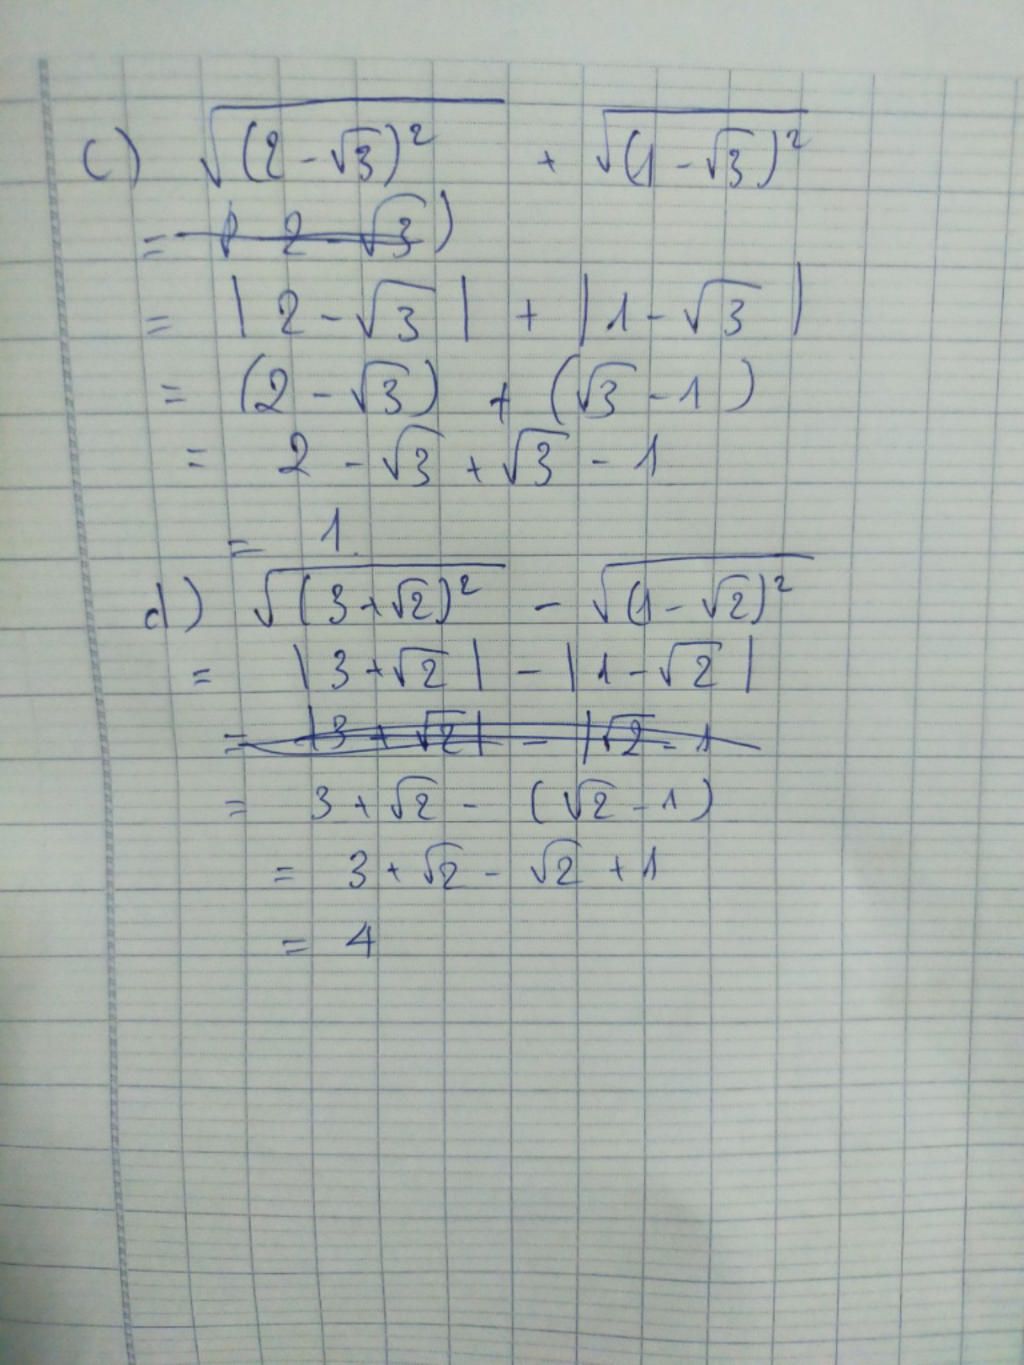 c) √(2 - √3)² + √(1 - √3)²
= 2 - √3)
= |2 - √3| + |1 - √3|
= (2 - √3) + (√3 - 1)
= 2 - √3 + √3 - 1
= 1.
d) √(3 + √2)² - √(1 - √2)²
= |3 + √2| - |1 - √2|
= |3 + √2| - |√2 - 1
= 3 + √2 - (√2 - 1)
= 3 + √2 - √2 + 1
= 4